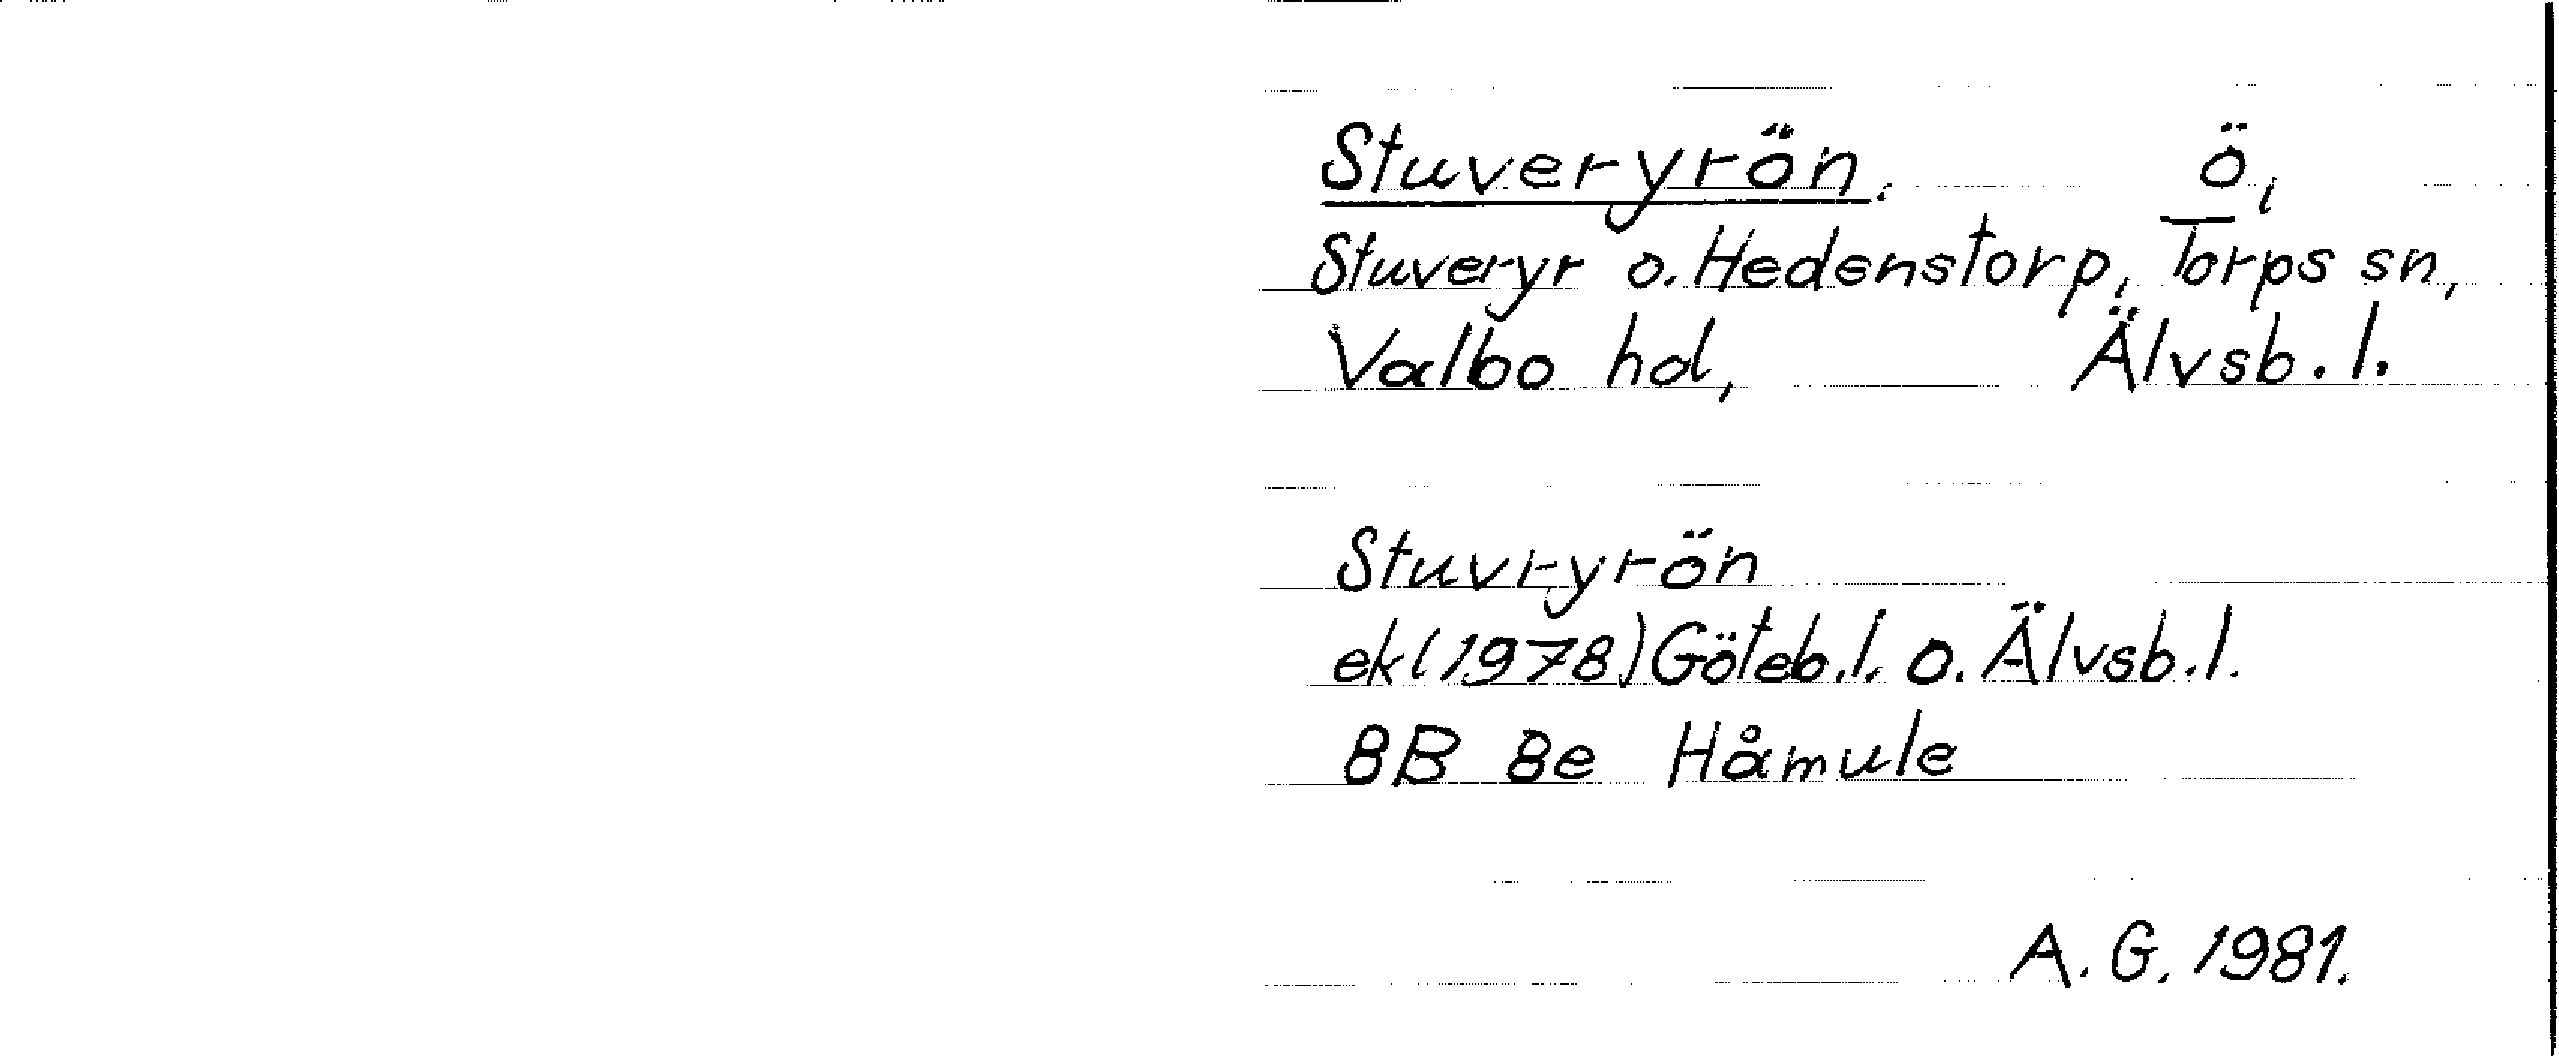 Stuveryrön. ö,
Stuveryr o. Hedenstorp, Torps sn,
Valbo hd, Älvsb. l.
Stuvryrön
ek (1978) Göteb. l. o. Älvsb. l.
8B 8e Håmule
A. G. 1981.